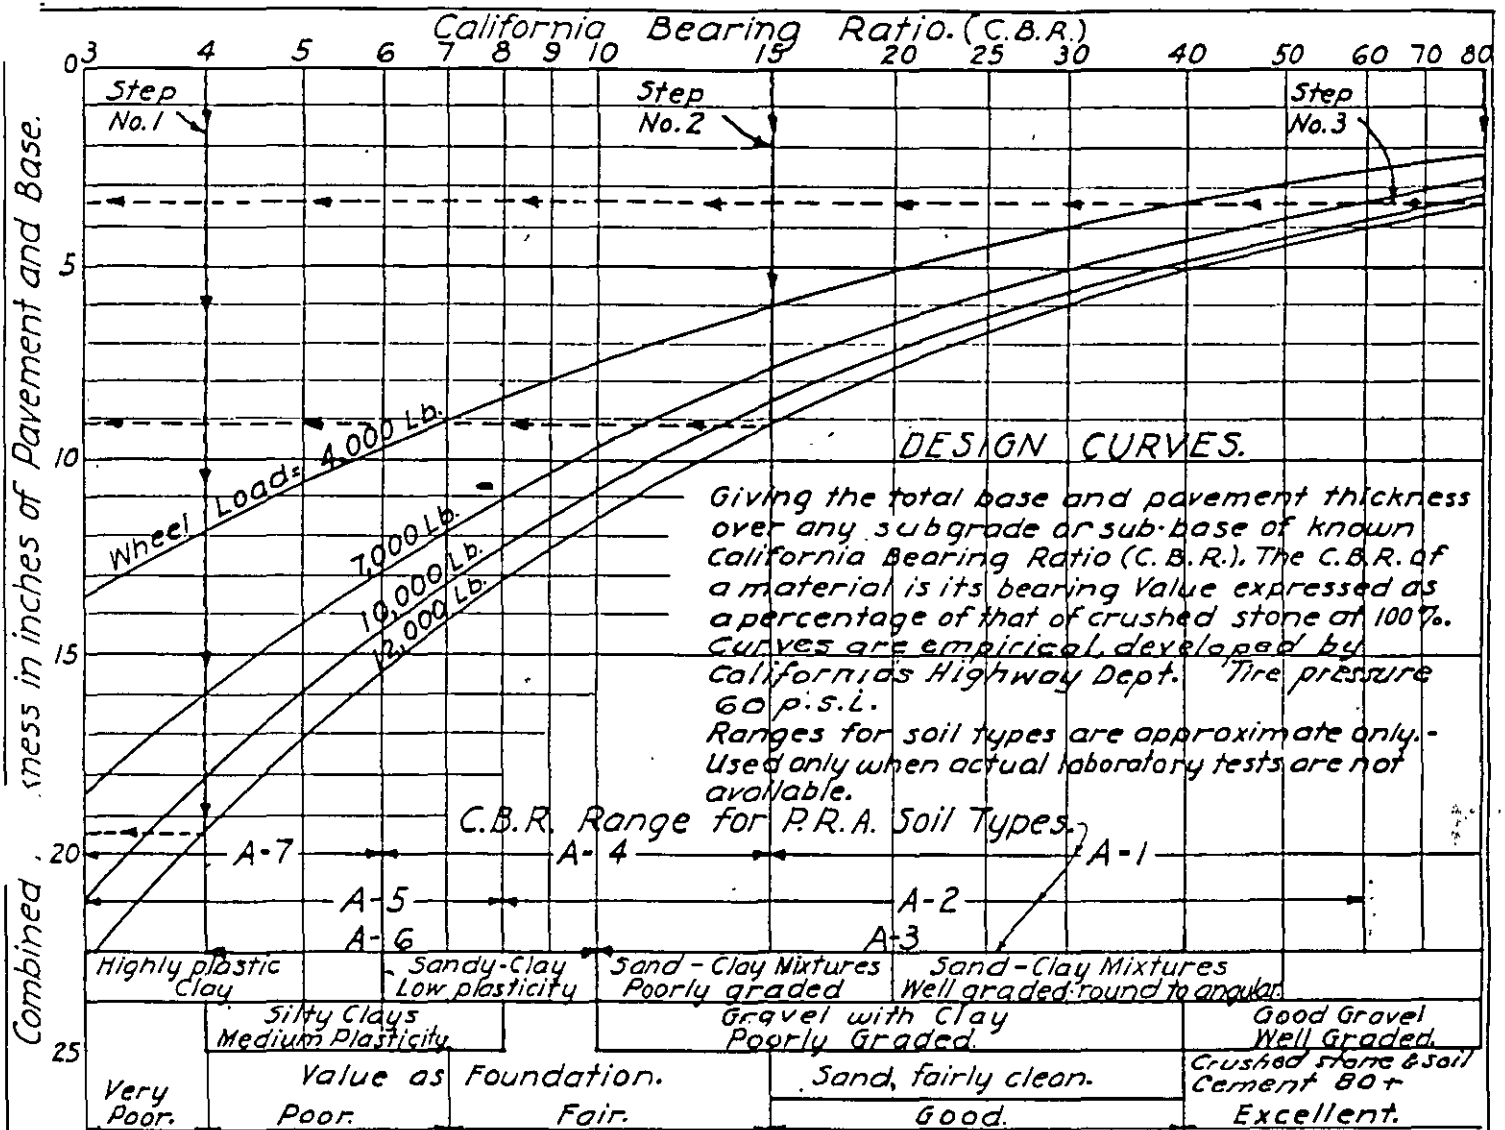 California Bearing Ratio. (C.B.R.)
3 4 5 6 7 8 9 10 15 20 25 30 40 50 60 70 80
0
5
10
15
20
25
Combined kness in inches of Pavement and Base.
Step
No.1
Step
No.2
Step
No.3
Wheel Load= 4,000 Lb.
7,000 Lb.
10,000 Lb.
12,000 Lb.
DESIGN CURVES.
Giving the total base and pavement thickness
over any subgrade or sub-base of known
California Bearing Ratio (C.B.R.). The C.B.R. of
a material is its bearing Value expressed as
a percentage of that of crushed stone at 100%.
Curves are empirical, developed by
California's Highway Dept. Tire pressure
60 p.s.i.
Ranges for soil types are approximate only.-
Used only when actual laboratory tests are not
available.
C.B.R. Range for P.R.A. Soil Types.
A-7 A-4 A-1
A-5 A-2
A-6 A-3
Highly plastic
Clay
Sandy-Clay
Low plasticity
Sand-Clay Mixtures
Poorly graded
Sand-Clay Mixtures
Well graded-round to angular.
Silty Clays
Medium Plasticity
Gravel with Clay
Poorly Graded.
Good Gravel
Well Graded.
Value as Foundation.
Sand, fairly clean.
Crushed stone & soil
Cement 80+
Very
Poor.
Poor.
Fair.
Good.
Excellent.